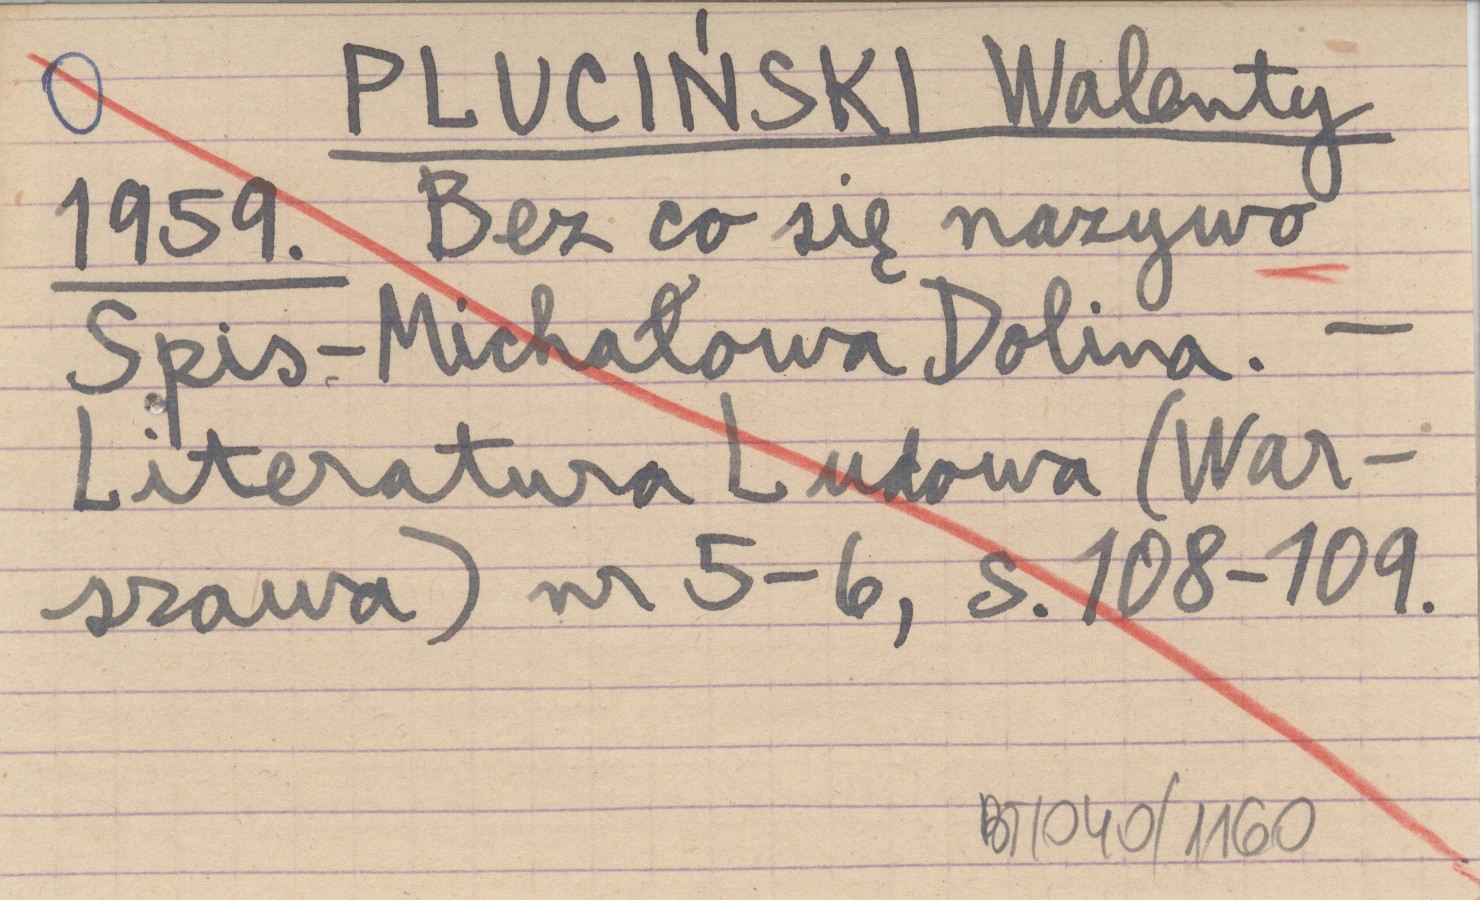 PLUCIŃSKI Walenty
1959. Bez co się nazywo
Spis-Michałowa Dolina. —
Literatura Ludowa (War-
szawa) nr 5-6, s. 108-109.
BT/040/1160